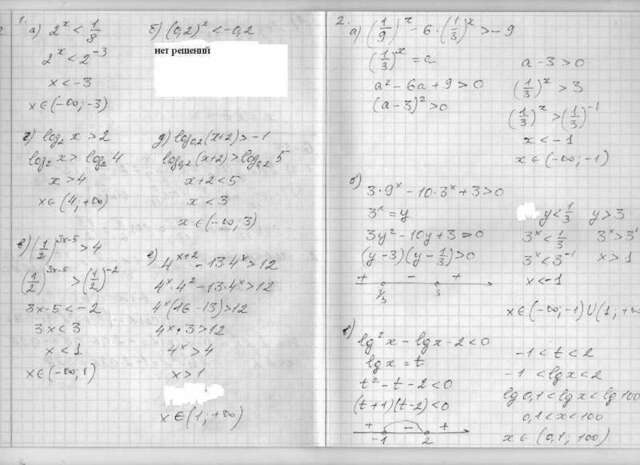 1.
а) 2^x < 1/8
2^x < 2^-3
x < -3
x ∈ (-∞; -3)
б) (0,2)^x < -0,2
нет решений
г) log₂ x > 2
log₂ x > log₂ 4
x > 4
x ∈ (4, +∞)
д) log₀,₂ (x+2) > -1
log₀,₂ (x+2) > log₀,₂ 5
x+2 < 5
x < 3
x ∈ (-∞, 3)
в) (1/2)^3x-5 > 4
(1/2)^3x-5 > (1/2)^-2
3x-5 < -2
3x < 3
x < 1
x ∈ (-∞, 1)
е) 4^x+2 - 13·4^x > 12
4^x·4^2 - 13·4^x > 12
4^x (16-13) > 12
4^x·3 > 12
4^x > 4
x > 1
x ∈ (1, +∞)
2.
а) (1/9)^x - 6·(1/3)^x > -9
(1/3)^x = a
a² - 6a + 9 > 0
(a-3)² > 0
a-3 > 0
(1/3)^x > 3
(1/3)^x > (1/3)^-1
x < -1
x ∈ (-∞, -1)
б)
3·9^x - 10·3^x + 3 > 0
3^x = y
3y² - 10y + 3 = 0
(y-3)(y-1/3) > 0
+ - +
1/3 3
y < 1/3 y > 3
3^x < 1/3 3^x > 3^1
3^x < 3^-1 x > 1
x < -1
x ∈ (-∞, -1) U (1, +∞
в)
lg² x - lg x - 2 < 0
lg x = t
t² - t - 2 < 0
(t+1)(t-2) < 0
+ - +
-1 2
-1 < t < 2
-1 < lg x < 2
lg 0,1 < lg x < lg 100
0,1 < x < 100
x ∈ (0,1, 100)